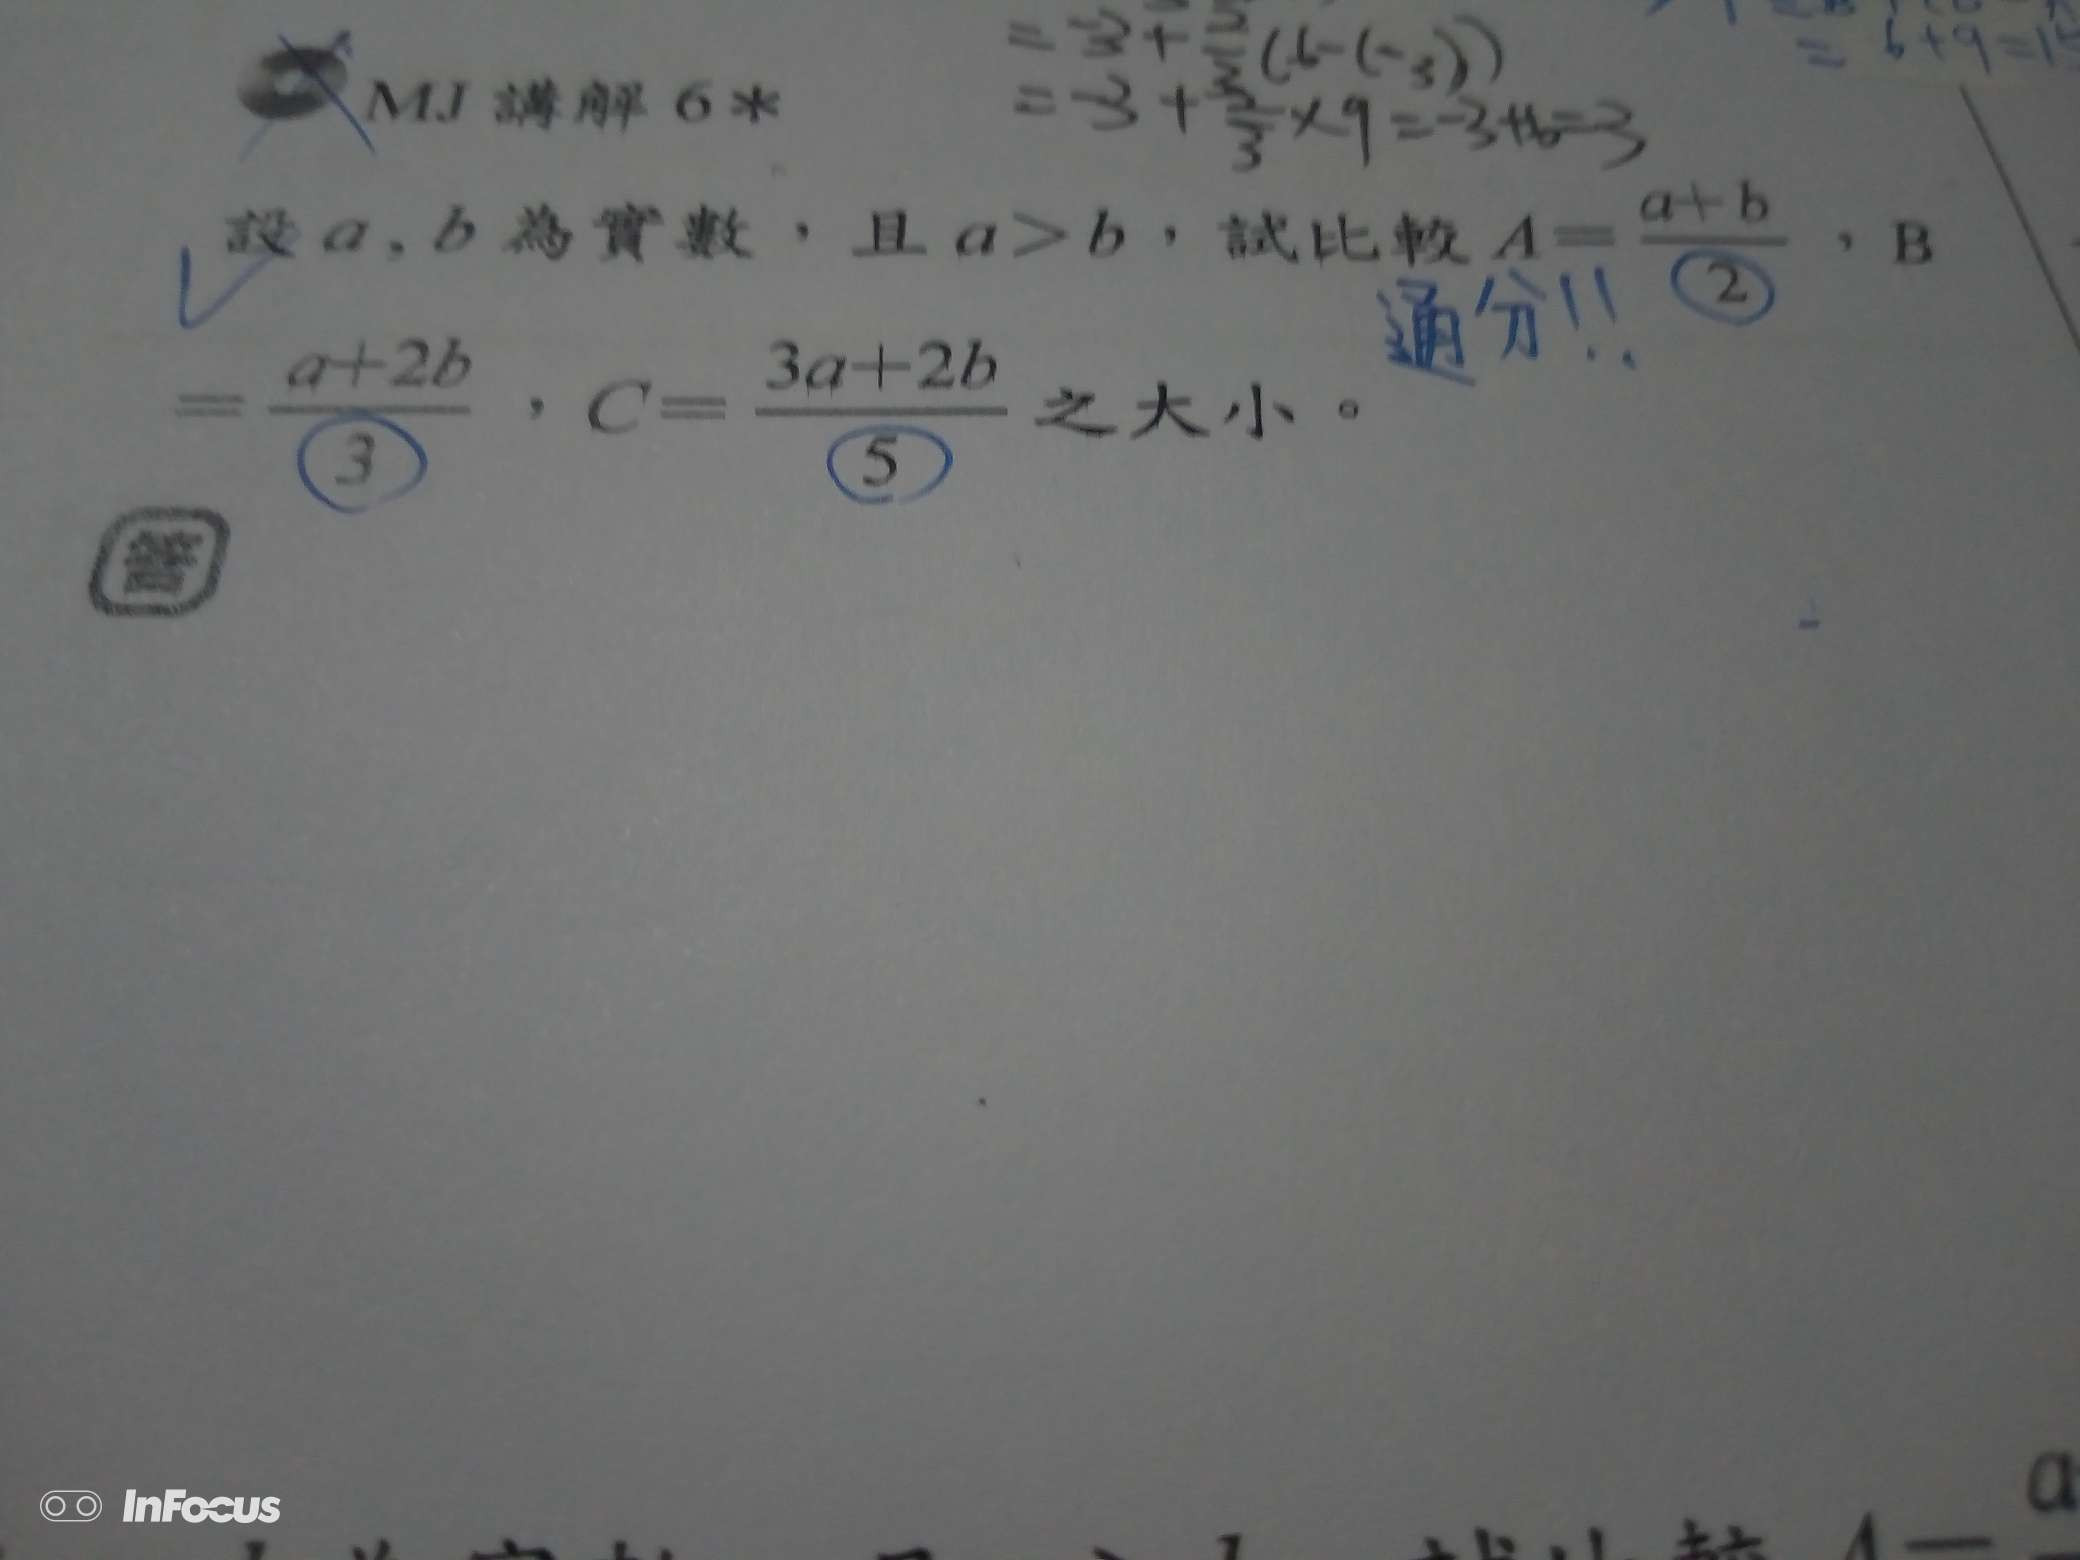 = -3 + (6-(-3))
MJ 講解 6 *
= -3 + 2/3 × 9 = -3+6=3
= 6+9=15
設 a, b 為實數，且 a>b，試比較 A= a+b/2，B
通分!!
= a+2b/3，C= 3a+2b/5 之大小。
答
InFocus